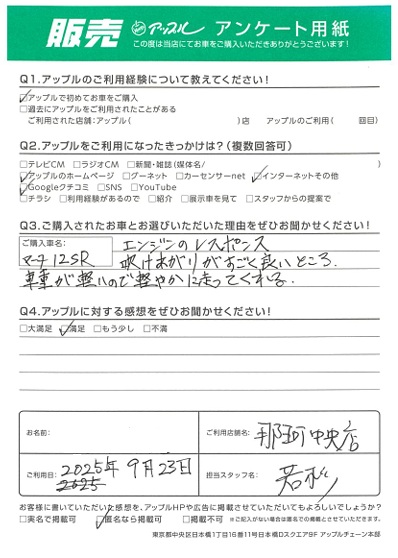 販売 アップル アンケート用紙
この度は当店にてお車をご購入いただきありがとうございます!
Q1.アップルのご利用経験について教えてください!
☑アップルで初めてお車をご購入
□過去にアップルをご利用されたことがある
ご利用された店舗:アップル( )店 アップルのご利用( 回目)
Q2.アップルをご利用になったきっかけは?(複数回答可)
□テレビCM □ラジオCM □新聞・雑誌(媒体名/ )
☑アップルのホームページ □グーネット □カーセンサーnet ☑インターネットその他
☑Googleクチコミ □SNS □YouTube
☑チラシ □利用経験があるので □紹介 □展示車を見て □スタッフからの提案で
Q3.ご購入されたお車とお選びいただいた理由をぜひお聞かせください!
ご購入車名: エンジンのレスポンス
マーチ12SR 吹けあがりがすごく良いところ
車重が軽いので軽やかに走ってくれる.
Q4.アップルに対する感想をぜひお聞かせください!
□大満足 ☑満足 □もう少し □不満
お名前: ご利用店舗名: 那珂中央店
ご利用日: 2025年 9月23日 担当スタッフ名: 若杉
2025
お客様に書いていただいた感想を、アップルHPや広告に掲載させていただいてもよろしいでしょうか?
□実名で掲載可 ☑匿名なら掲載可 □掲載不可 ※ご記入がない場合は匿名での掲載とさせていただきます。
東京都中央区日本橋1丁目16番11号日本橋Dスクエア9F アップルチェーン本部